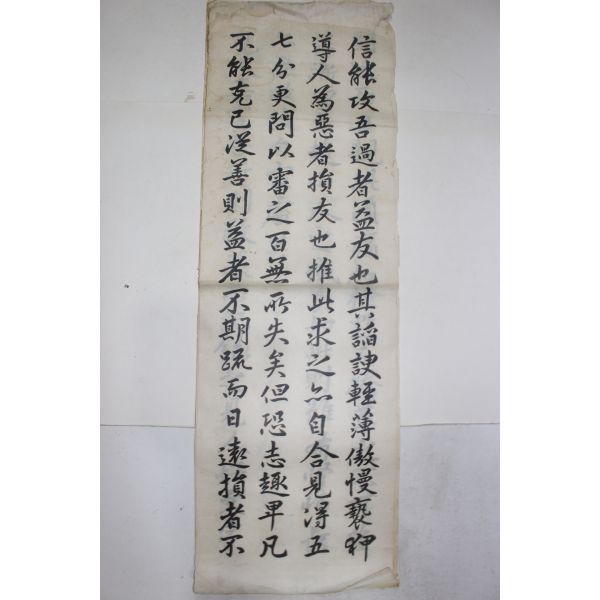 信能攻吾過者益友也其謟諛輕薄傲慢褻狎
導人為惡者損友也推此求之亦自合見得五
七分更問以審之百無所失矣但恐志趣卑凡
不能克己從善則益者不期疏而日遠損者不